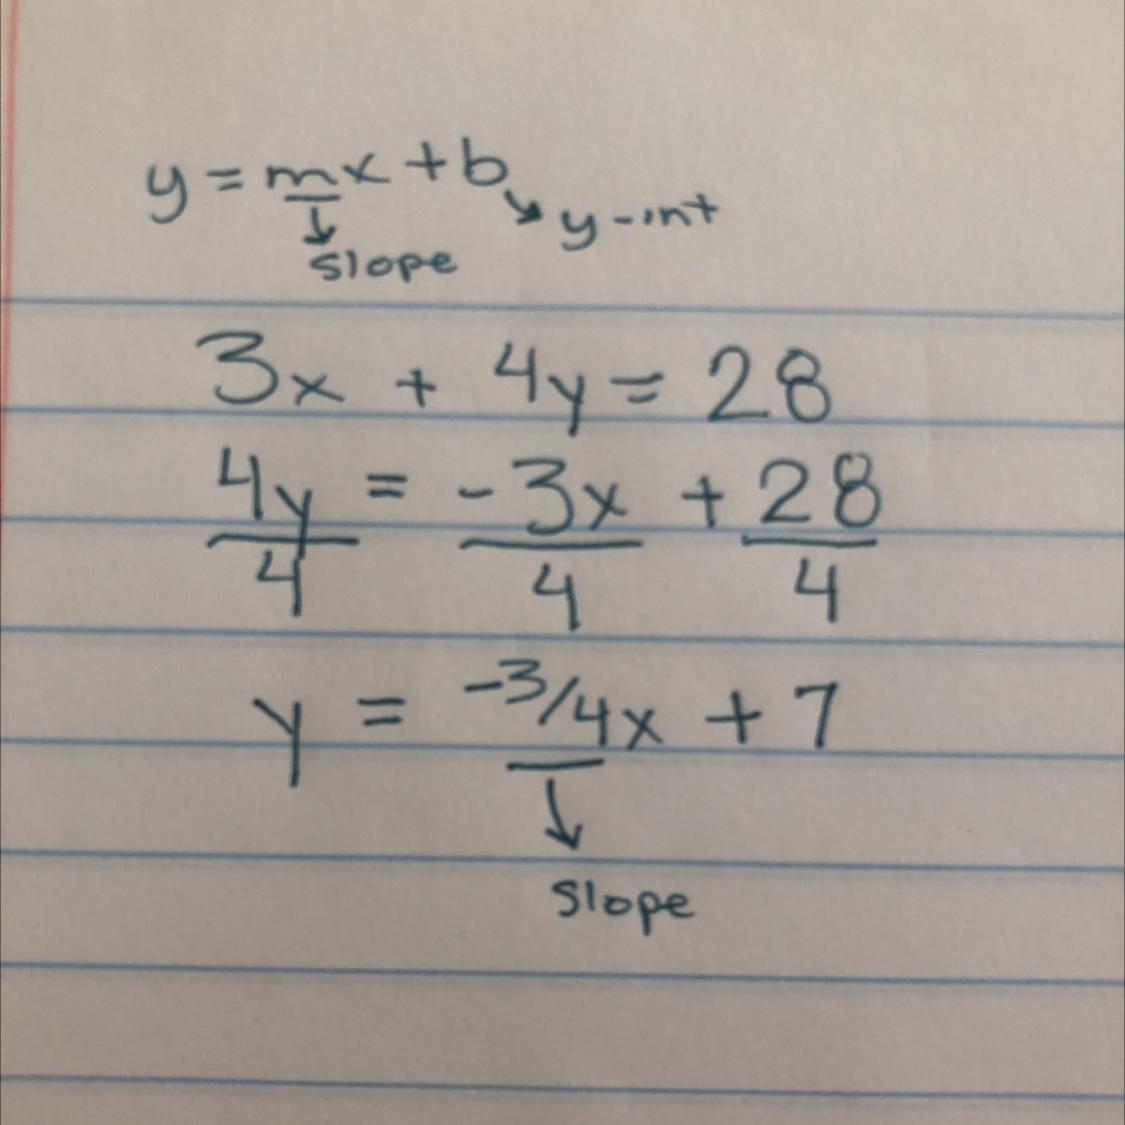 y = mx + b
y-int
slope
3x + 4y = 28
4y = -3x + 28
4 4 4
y = -3/4x + 7
slope